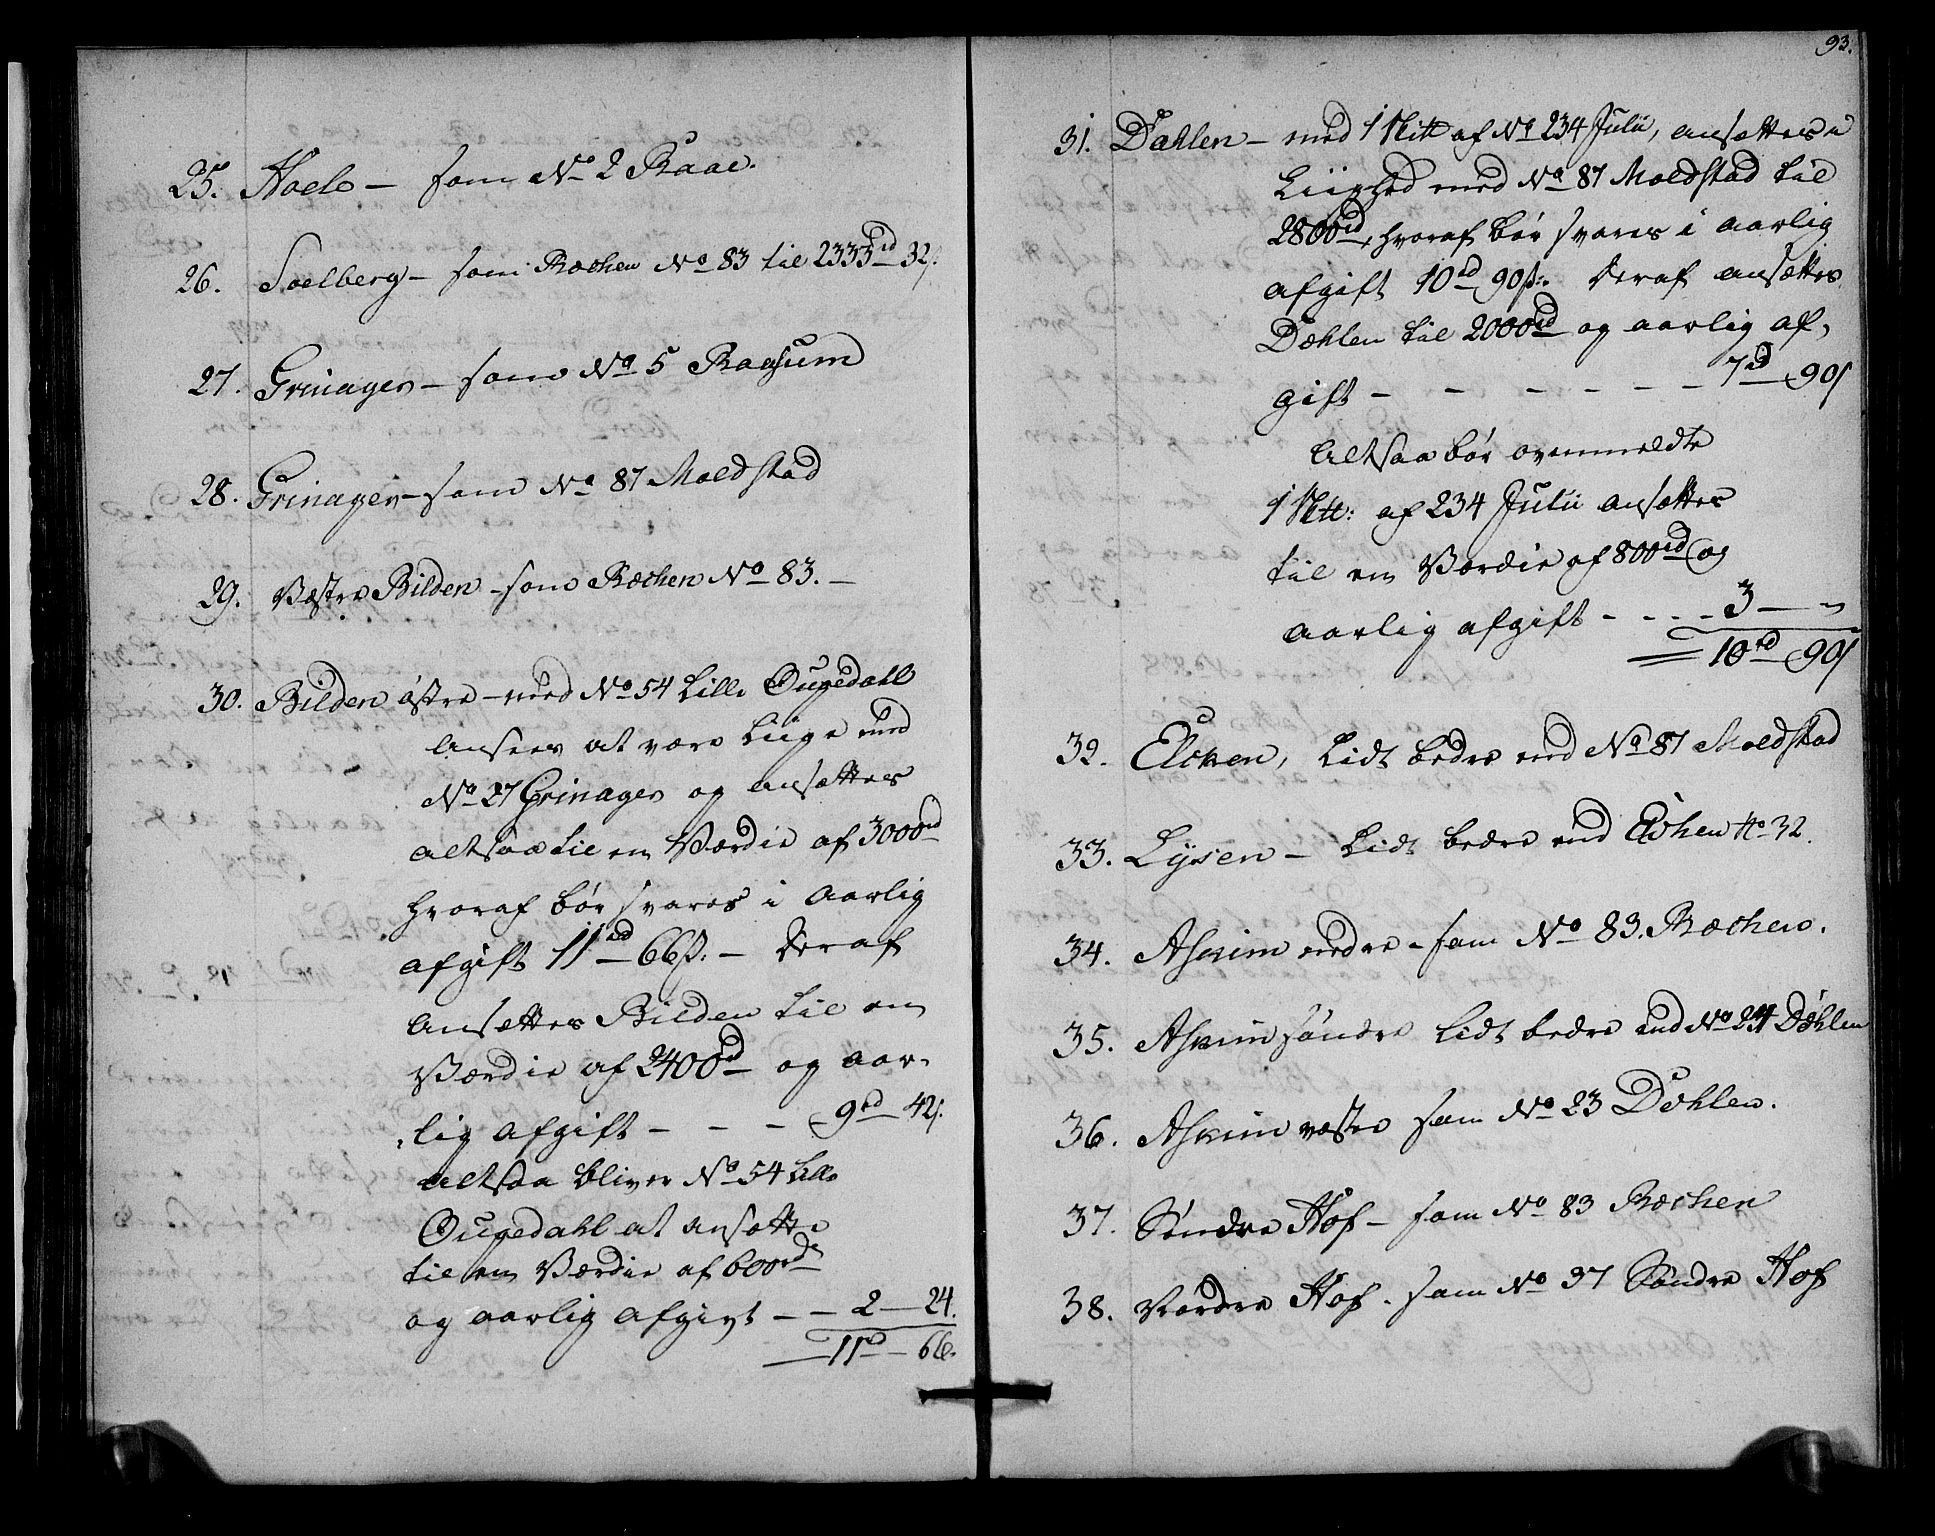 25. Hoele – som No 2 Raae.
26. Soelberg – som Rœchen No 83 til 2333rd 32s.
27. Grinager – som No 5 Raasum
28. Grinager – som No 87 Moldstad
29. Væstre Bilden – som Rœchen No 83. –
30. Bilden østre – med No 54 Lille Ougedahl
ansees at være Liige med
No 27 Grinager og ansættes
altsaa til en Værdie af 3000rd
hvoraf bør svares i aarlig
afgift 11rd 66s. – Deraf
ansættes Bilden til en
Værdie af 2400rd og aar-
lig afgift – – – 9rd 42s.
altsaa bliver No 54 Lille
Ougedahl at ansætte
til en Værdie af 600rd
og aarlig afgivt – – 2 – 24.
11rd – 66.
93.
31. Dæhlen – med 1 af No 234 Julii, ansættes i
Liighed med No 87 Moldstad til
2800rd, hvoraf bør svares i aarlig
afgift 10rd 90s. Deraf ansættes
Dæhlen til 2000rd og aarlig af-
gift – – – – – – 7rd 90s
Altsaa bør ovenmeldte
1 af 234 Julii ansættes
til en Værdie af 800rd og
aarlig afgift – – – – 3 – "
10rd 90s
32. Elvken, Lidt bedre end No 87 Moldstad
33. Lysen – Lidt bedre end No 32.
34. Askim nedre – som No 83. Rœchen.
35. Askim søndre Lidt bedre end No 24 Døhlen
36. Askim væstre som No 23 Døhlen.
37. Søndre Hof – som No 83 Rœchen
38. Nordre Hof. som No 37 Søndre Hof